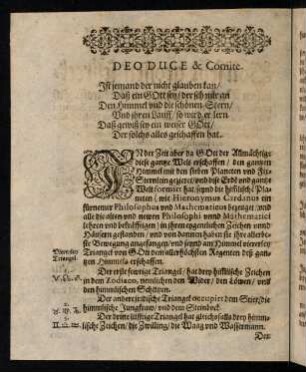 DEO DUCE & Comite.
Ist jemand der nicht glauben kan/
Daß ein GOtt sey/ der seh nur an
Den Himmel vnd die schönen Stern/
Vnd ihren Lauff/ so wird er lern
Daß gewiß sey ein weiser GOtt/
Der solchs alles geschaffen hat.
IN der Zeit aber da GOtt der Allmächtige
diese gantze Welt erschaffen/ den gantzen
Himmel mit den sieben Planeten vnd
Sternelein gezieret/ vnd diese Erde vnd gantze
Welt formiert hat/ seynd die himlische Pla-
neten/ wie Hieronymus Cardanus ein
fürnemer Philosophus vnd Mathematicus bezeuget/ vnd
alle die alten vnd newen Philosophi vnnd Mathematici
lehren vnd bekräfftigen/ in ihren eygentlichen Zeichen vnnd
Häusern gestanden/ vnd von dannen haben sie ihre allerbe-
ste Bewegung angefangen/ vnd seynd am Himmel viererley
Triangel von Gott dem allerhöchsten Regenten deß gan-
tzen Himmels erschaffen.
Viererley
Triangel.
Der erste fewrige Triangel/ hat drey himlische Zeichen
in dem Zodiaco, nemlichen den Wider/ den Löwen/ vnd
den himmlischen Schützen.
Der ander irdische Triangel occupiert dem Stier/ die
himmlische Jungfraw/ vnd dem Steinbock.
Der dritte lüfftige Triangel hat gleichsfalls drey himm-
lische Zeichen/ die Zwilling/ die Waag vnd Wassermann.
Der